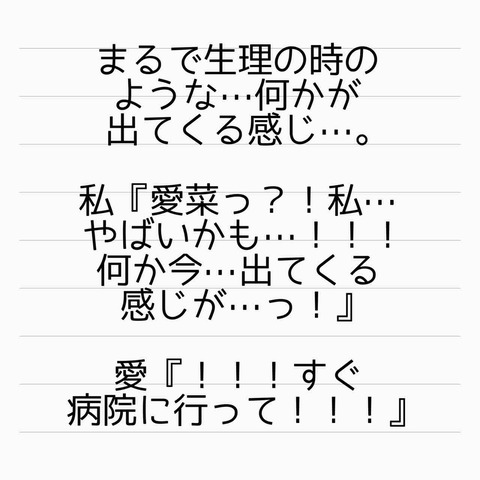 まるで生理の時の
ような…何かが
出てくる感じ…。
私『愛菜っ？！私…
やばいかも…！！！
何か今…出てくる
感じが…っ！』
愛『！！！すぐ
病院に行って！！！』